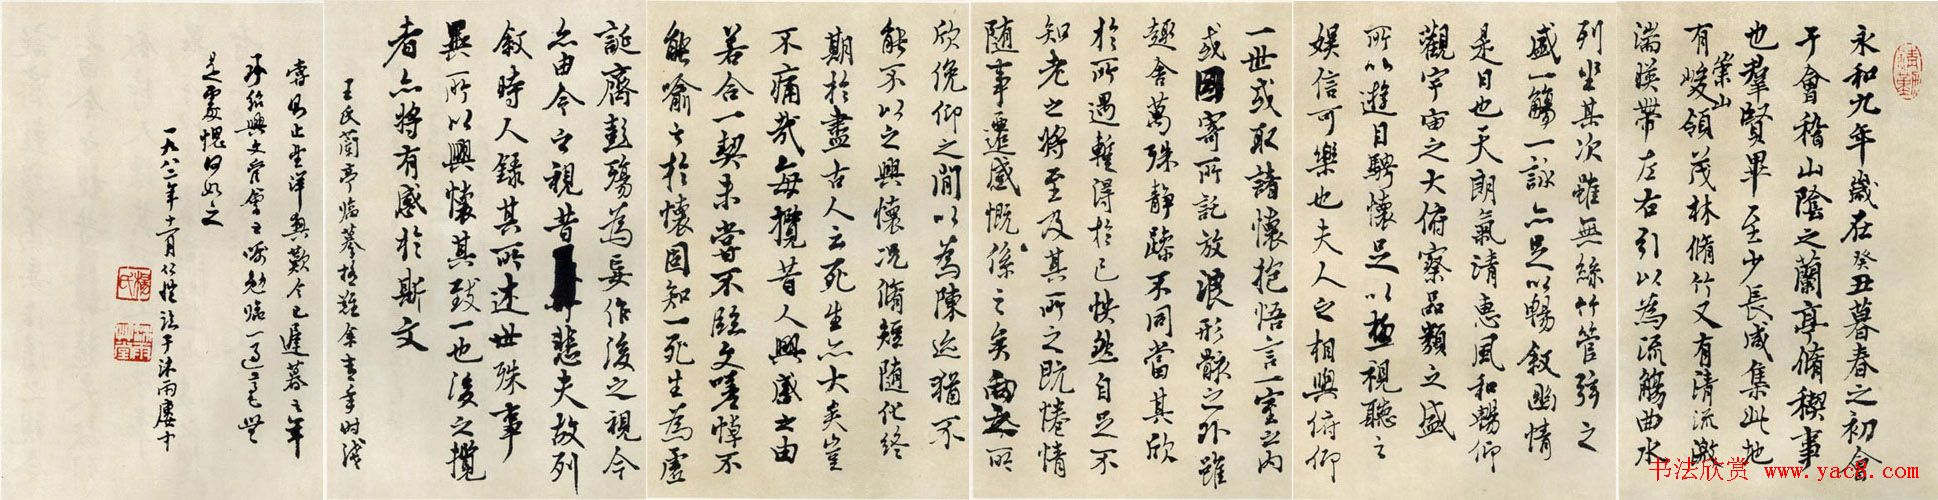 永和九年歲在癸丑暮春之初會
于會稽山陰之蘭亭脩稧事
也羣賢畢至少長咸集此地
有崇山峻領茂林脩竹又有清流激
湍暎帶左右引以為流觴曲水
列坐其次雖無絲竹管弦之
盛一觴一詠亦足以暢敘幽情
是日也天朗氣清惠風和暢仰
觀宇宙之大俯察品類之盛
所以遊目騁懷足以極視聽之
娛信可樂也夫人之相與俯仰
一世或取諸懷抱悟言一室之內
或因寄所託放浪形骸之外雖
趣舍萬殊靜躁不同當其欣
於所遇蹔得於己怏然自足不
知老之將至及其所之既惓情
隨事遷感慨係之矣向之所
欣俛仰之閒以為陳迹猶不
能不以之興懷況脩短隨化終
期於盡古人云死生亦大矣豈
不痛哉每攬昔人興感之由
若合一契未嘗不臨文嗟悼不
能喻之於懷固知一死生為虛
誕齊彭殤為妄作後之視今
亦由今之視昔悲夫故列
敘時人錄其所述世殊事
異所以興懷其致一也後之攬
者亦將有感於斯文
王氏蘭亭臨摹極難余青年時
望洋興歎今已遲暮之年
承紹興文管會之囑勉臨一過
愧何如之
一九八二年十一月仁愷於沐雨樓中
楊氏
书法欣赏 www.yac8.com